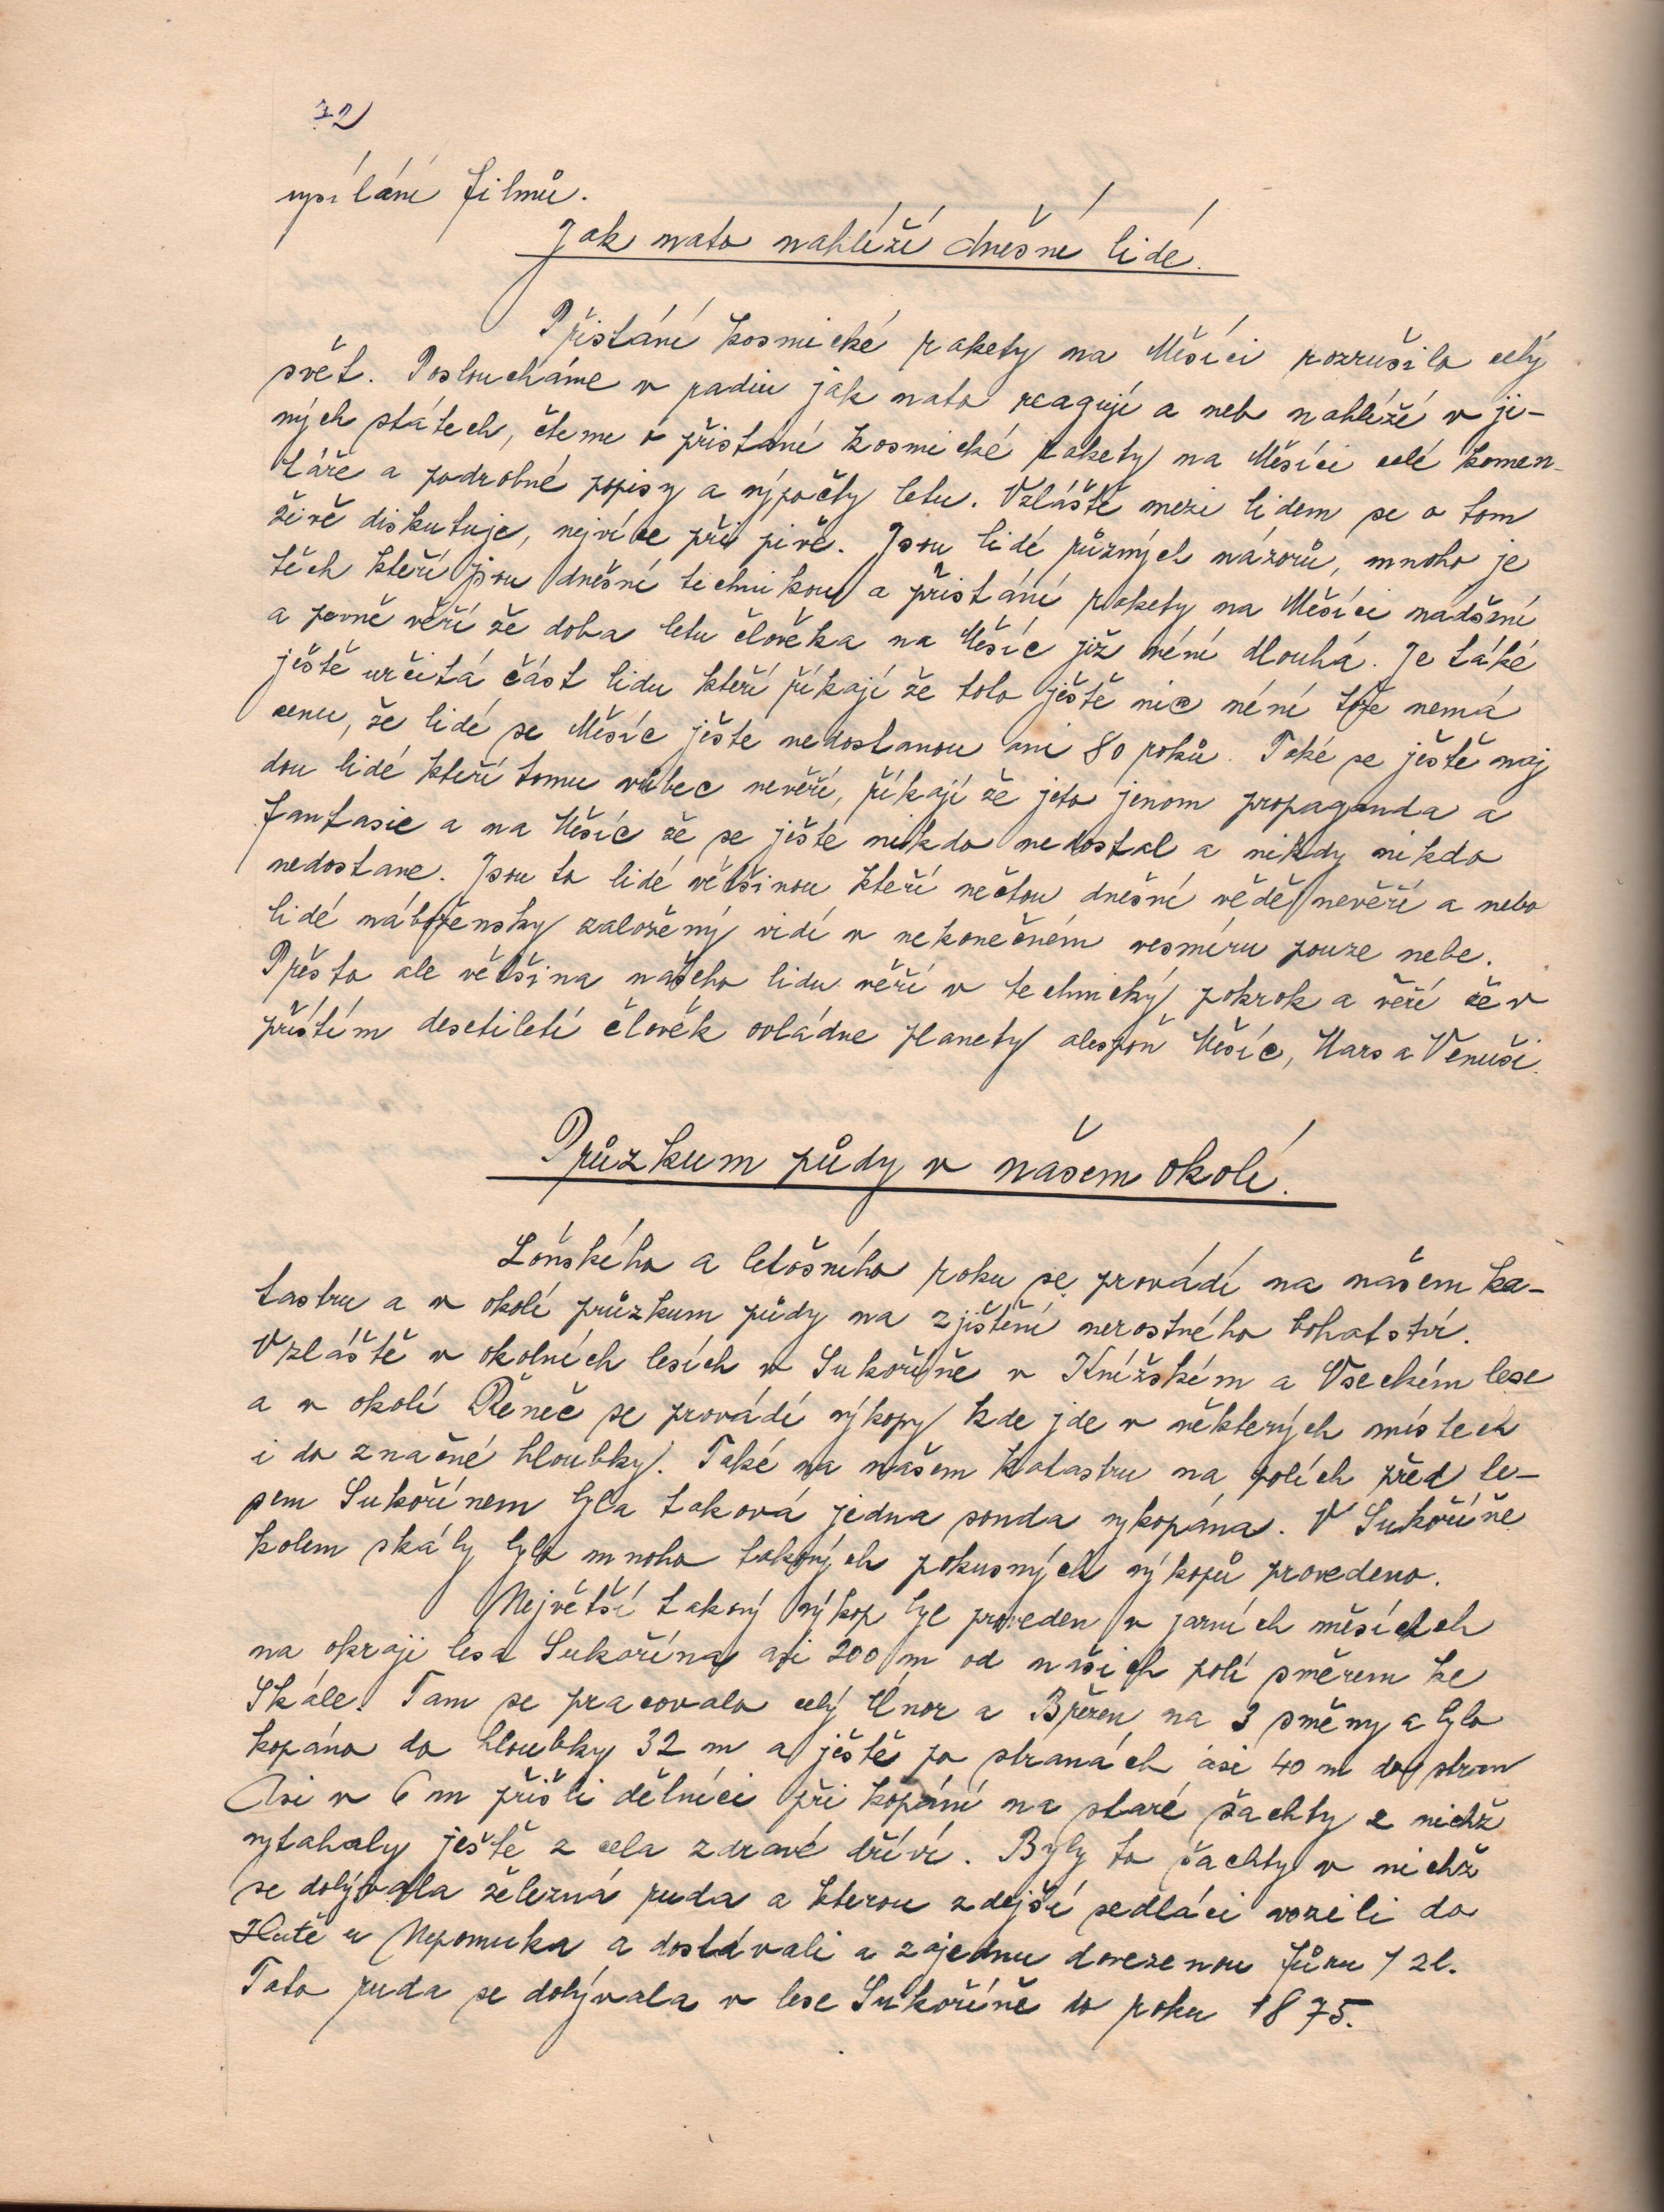 72
vysílání filmů.
Jak nato nahlíží dnešní lidé.
Přistání kosmické rakety na Měsíci rozrušilo celý
svět. Posloucháme v radiu jak nato reagují a neb nahlíží v ji-
ných státech, čteme o přistání kosmické rakety na Měsíci celé komen-
táře a podrobné popisy a výpočty letu. Vzláště mezi lidem se o tom
živě diskutuje, nejvíce při pivě. Jsou lidé různých názorů, mnoho je
těch kteří jsou dnešní technikou a přistání rakety na Měsíci nadšení
a pevně věří že doba letu člověka na Měsíc již není dlouhá. Je také
ještě určitá část lidu kteří říkají že toto ještě nic není tože nemá
cenu, že lidé se Měsíc ještě nedostanou ani 80 roků. Také se ještě naj
dou lidé kteří tomu vůbec nevěří, říkají že jeto jenom propaganda a
fantasie a na Měsíc že se ještě nikdo nedostal a nikdy nikdo
nedostane. Jsou to lidé většinou kteří nečtou dnešní vědě nevěří a nebo
lidé nábožensky založený vidí v nekonečném vesmíru pouze nebe.
Přesto ale většina našeho lidu věří v technický pokrok a věří že v
příštím desetiletí člověk ovládne planety alespoň Měsíc, Mars a Venuši.
Průzkum půdy v našem okolí.
Loňského a letošního roku se provádí na našem ka-
tastru a v okolí průzkum půdy na zjištění nerostného bohatství.
Vzláště v okolních lesích v Sukoříně v Knížském a Vseckém lese
a v okolí Řeneč se provádí výkopy kde jde v některých místech
i do značné hloubky. Také na našem katastru na polích před le-
sem Sukořínem byla taková jedna sonda vykopána. V Sukoříně
kolem skály bylo mnoho takových pokusných výkopů provedeno.
Největší takový výkop byl proveden v jarních měsících
na okraji lesa Sukořína asi 200 m od našich polí směrem ke
Skále. Tam se pracovalo celý Únor a Březen na 3 směny a bylo
kopáno do hloubky 32 m a ještě po stranách asi 40 m do stran
Asi v 6 m přišli dělníci při kopání na staré šachty z nichž
vytahaly ještě z cela zdravé dříví. Byly to šachty v nichž
se dolývala železná ruda a kterou zdejší sedláci vozili do
Hutě u Nepomuka a dostávali a zajednu dovezenou fůru 1 zl.
Tato ruda se dolývala v lese Sukoříně do roku 1875.